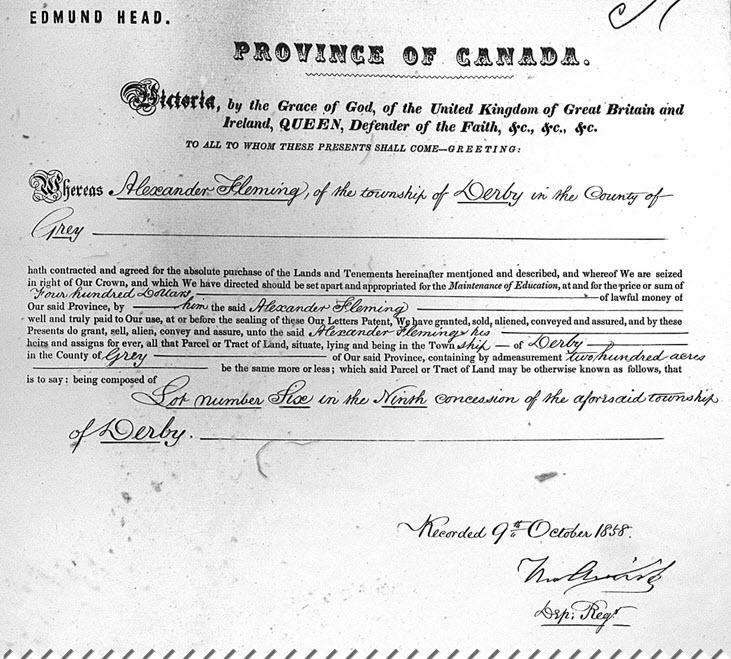 EDMUND HEAD.
PROVINCE OF CANADA.
Victoria, by the Grace of God, of the United Kingdom of Great Britain and
Ireland, QUEEN, Defender of the Faith, &c., &c., &c.
TO ALL TO WHOM THESE PRESENTS SHALL COME—GREETING:
Whereas Alexander Fleming, of the township of Derby in the County of
Grey
hath contracted and agreed for the absolute purchase of the Lands and Tenements hereinafter mentioned and described, and whereof We are seized
in right of Our Crown, and which We have directed should be set apart and appropriated for the Maintenance of Education, at and for the price or sum of
Four hundred Dollars of lawful money of
Our said Province, by him the said Alexander Fleming
well and truly paid to Our use, at or before the sealing of these Our Letters Patent, We have granted, sold, aliened, conveyed and assured, and by these
Presents do grant, sell, alien, convey and assure, unto the said Alexander Fleming, his
heirs and assigns for ever, all that Parcel or Tract of Land, situate, lying and being in the Town ship of Derby
in the County of Grey of Our said Province, containing by admeasurement two hundred acres
be the same more or less; which said Parcel or Tract of Land may be otherwise known as follows, that
is to say: being composed of
Lot number Six in the Ninth concession of the aforesaid township
of Derby.
Recorded 9th October 1858.
Dep: Regr